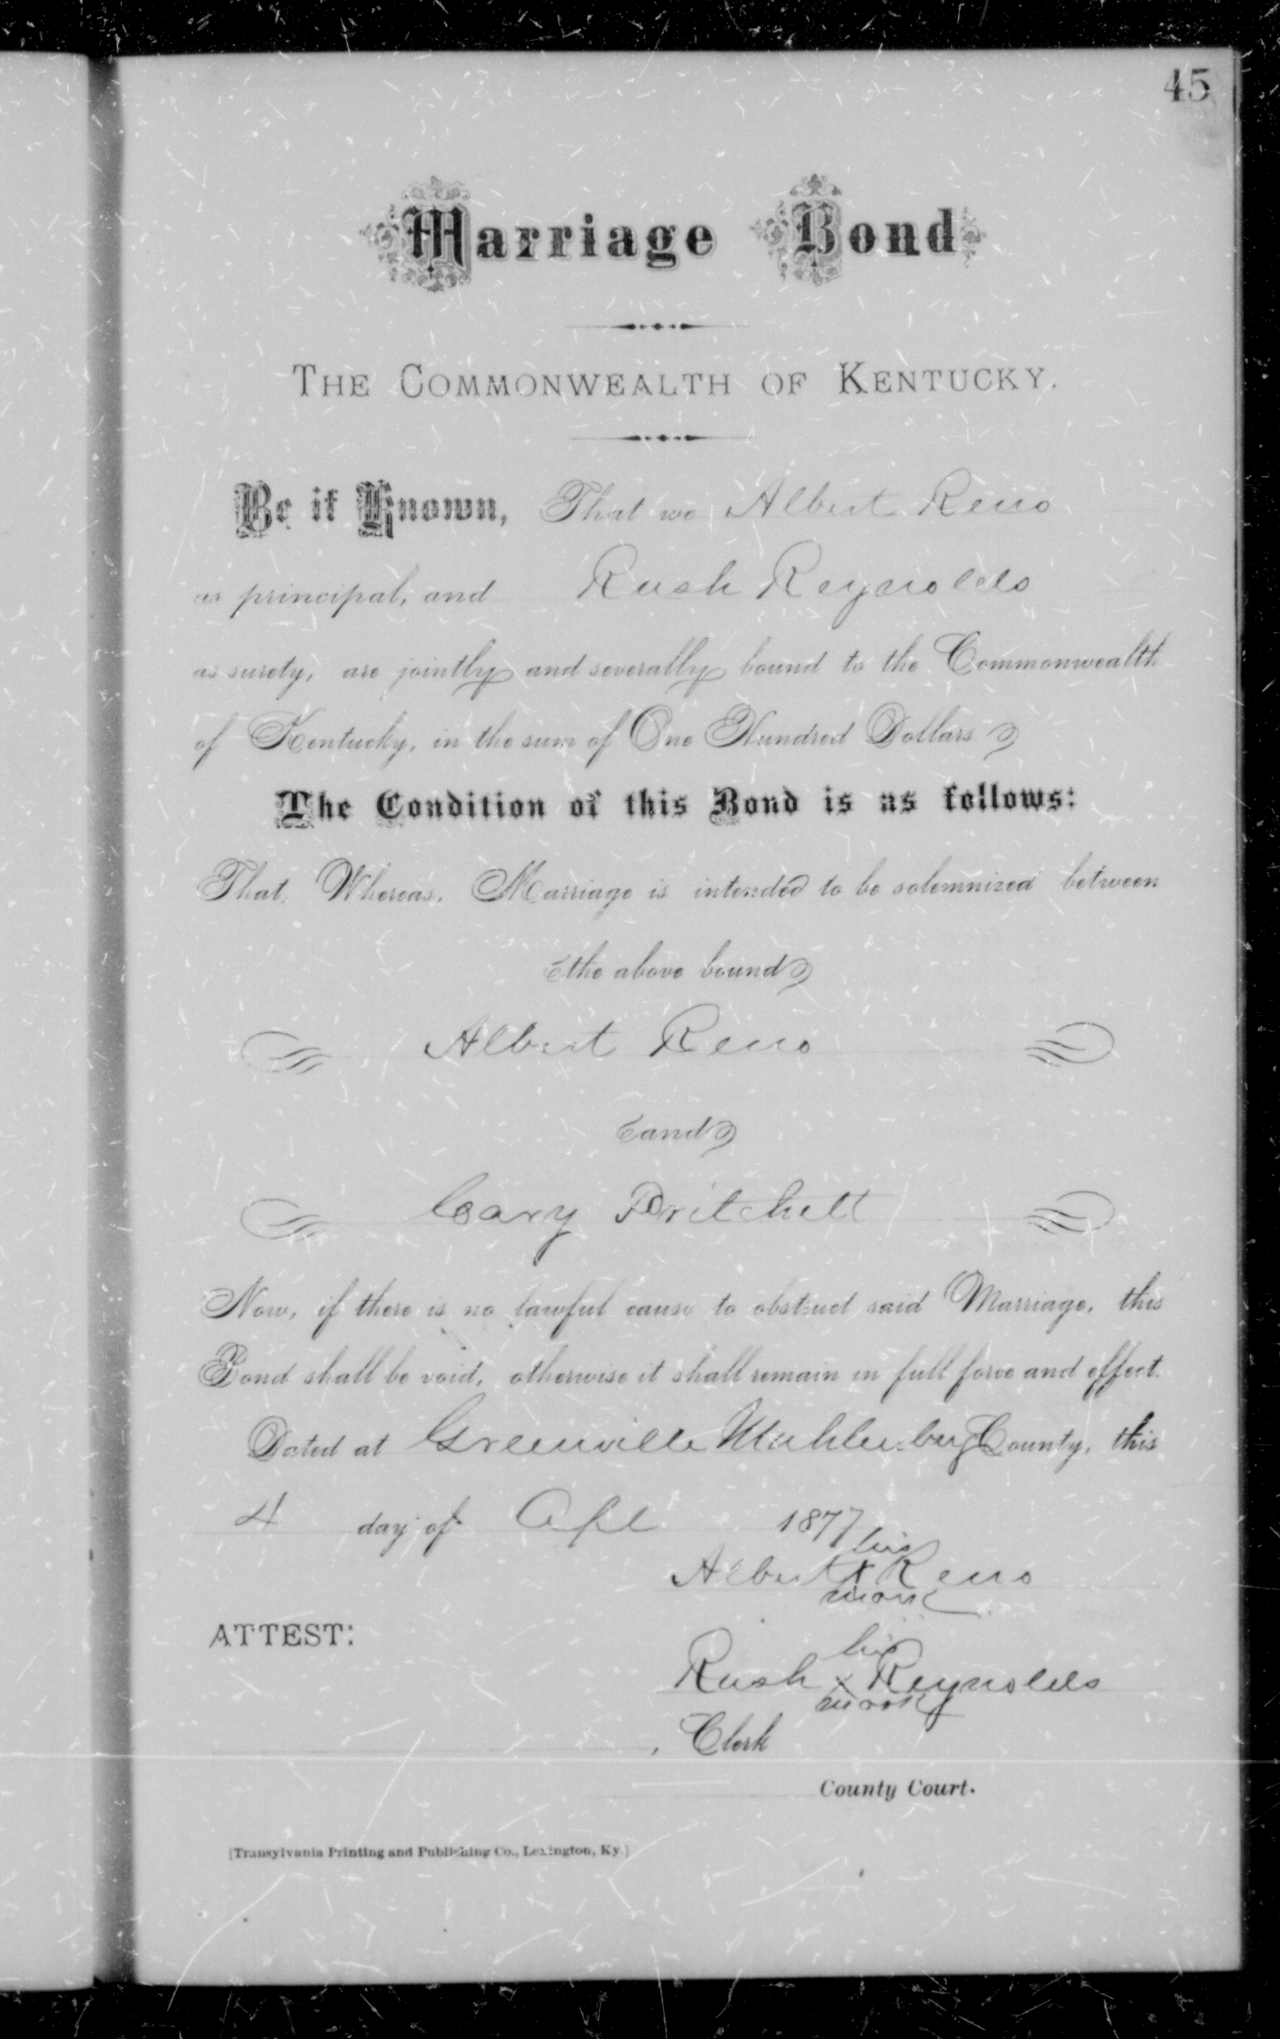 45
Marriage Bond
THE COMMONWEALTH OF KENTUCKY.
Be it Known, That we Albert Reno
as principal, and Rush Reynolds
as surety, are jointly and severally bound to the Commonwealth
of Kentucky, in the sum of One Hundred Dollars
The Condition of this Bond is as follows:
That, Whereas, Marriage is intended to be solemnized between
the above bound
Albert Reno
and
Cary Pritchett
Now, if there is no lawful cause to obstruct said Marriage, this
Bond shall be void, otherwise it shall remain in full force and effect.
Dated at Greenville Muhlenberg County, this
4 day of Apl 1877
his
Albert X Reno
mark
ATTEST:
his
Rush X Reynolds
mark
, Clerk
County Court.
[Transylvania Printing and Publishing Co., Lexington, Ky.]